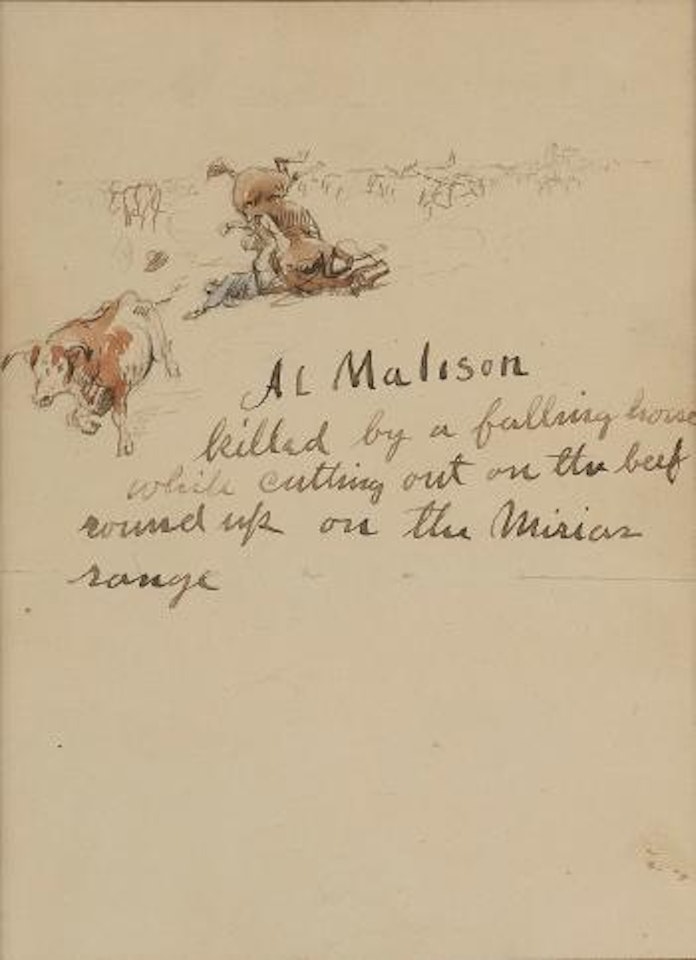 Al Malison
killed by a falling horse
while cutting out on the beef
round up on the Mirias
range